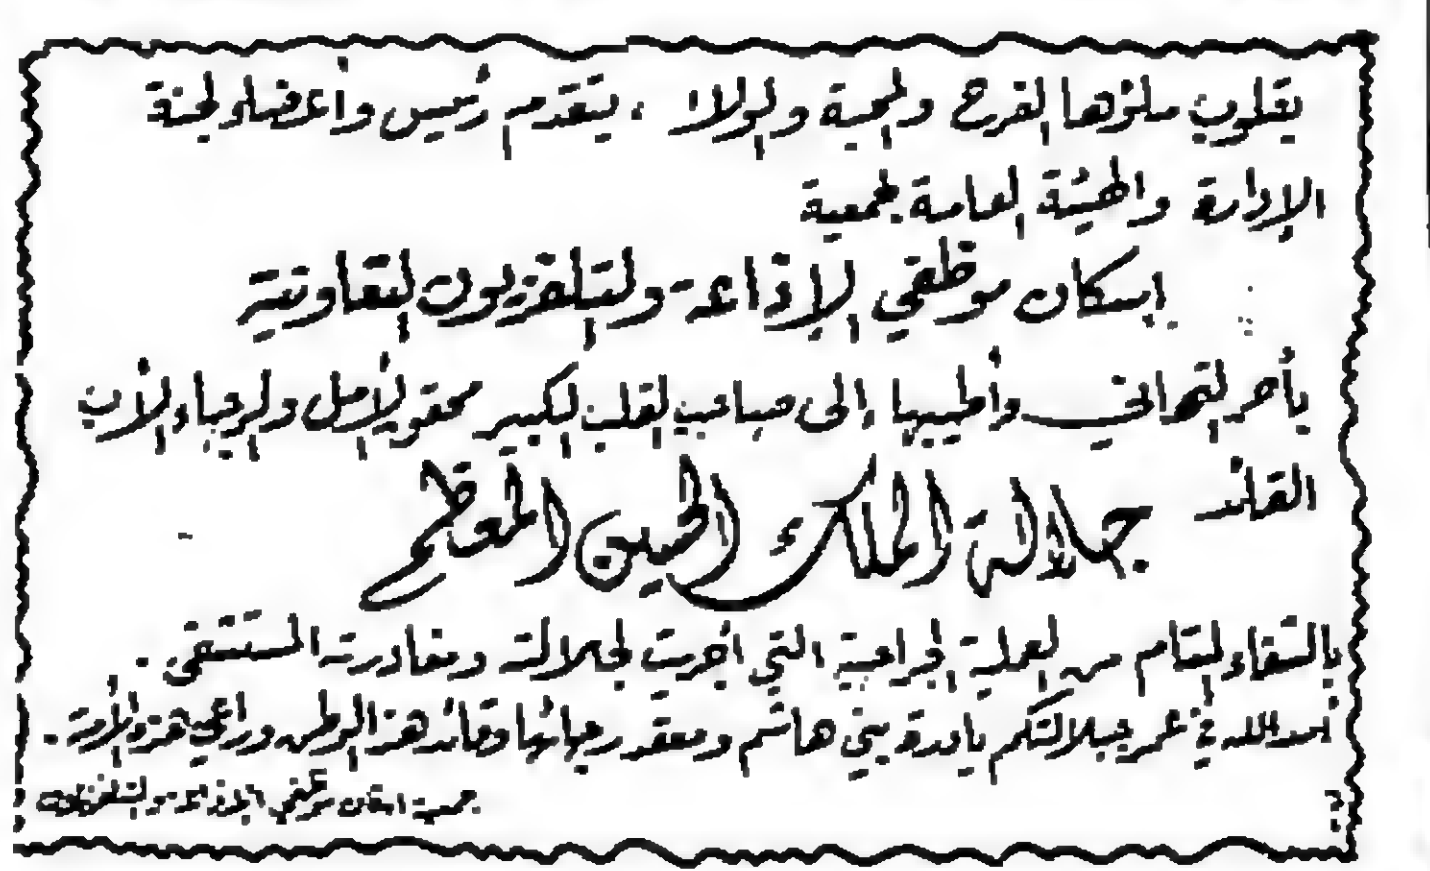 بقلوب ملؤها الفرح والمحبة والولاء ، يتقدم رئيس وأعضاء لجنة
الإدارة والهيئة العامة لجمعية
إسكان موظفي الإذاعة والتلفزيون التعاونية
بأحر التهاني وأطيبها إلى صاحب القلب الكبير محقق الأمل والرجاء الأب
القائد
جلالة الملك الحسين المعظم
بالشفاء التام من العملية الجراحية التي أجريت لجلالته ومغادرته المستشفى .
أمد الله في عمر جلالتكم يا درة بني هاشم ومعقد رجائها وقائد هذا الوطن وراعي هذه الأمة .
جمعية اسكان موظفي الإذاعة والتلفزيون